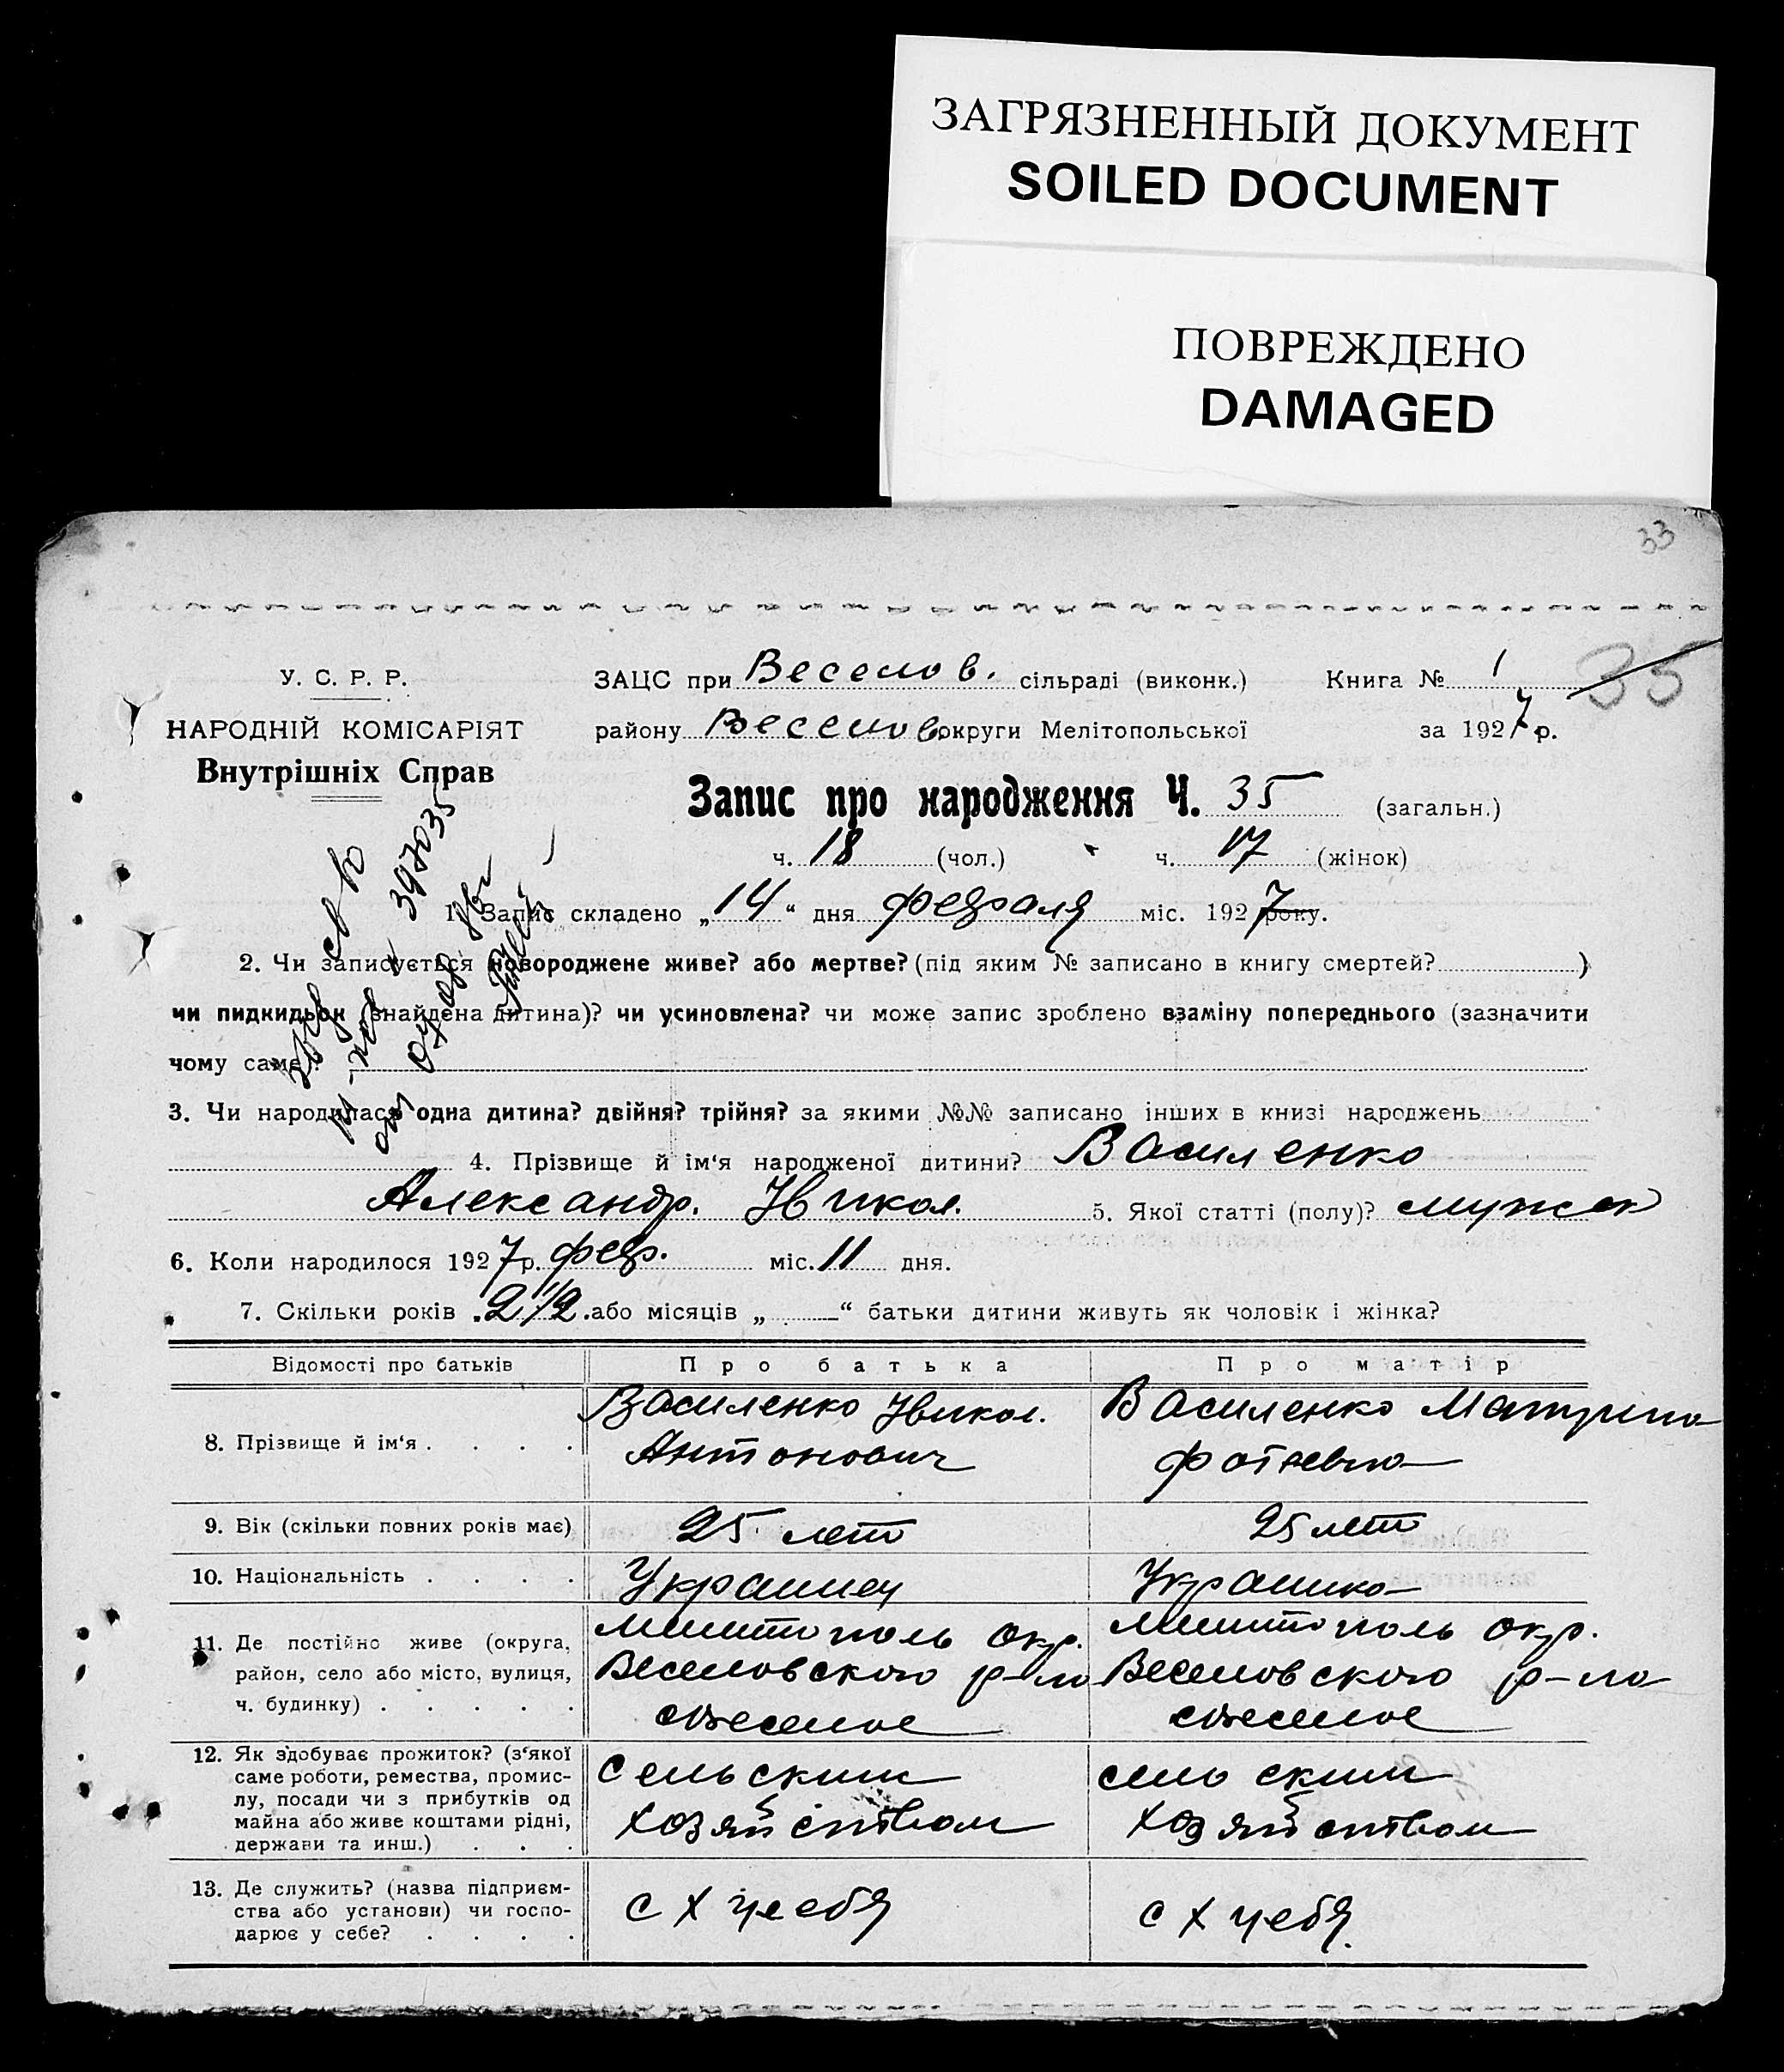 ЗАГРЯЗНЕННЫЙ ДОКУМЕНТ
SOILED DOCUMENT
ПОВРЕЖДЕНО
DAMAGED
33
35
У. С. Р. Р.
НАРОДНІЙ КОМІСАРІЯТ
Внутрішніх Справ
ЗАЦС при Веселов. сільраді (виконк.) Книга № 1
району Веселов. округи Мелітопольської за 1927 р.
Запис про народження Ч. 35 (загальн.)
ч. 18 (чол.) ч. 17 (жінок)
397035
1. Запис складено „14“ дня февраля міс. 1927 року.
2. Чи записується новороджене живе? або мертве? (під яким № записано в книгу смертей? )
чи пидкидьок (знайдена дитина)? чи усиновлена? чи може запис зроблено взаміну попереднього (зазначити
чому саме).
3. Чи народилася одна дитина? двійня? трійня? за якими №№ записано інших в книзі народжень
4. Прізвище й ім‘я народженої дитини? Василенко
Александр. Никол. 5. Якої статті (полу)? мужск
6. Коли народилося 1927 р. февр. міс. 11 дня.
7. Скільки років „2 1/2 або місяців „ “ батьки дитини живуть як чоловік і жінка?
Відомості про батьків Про батька Про матір
8. Прізвище й ім‘я . . . . Василенко Никол. Василенко Матрина
Антонович Фотиевна
9. Вік (скільки повних років має) 25 лет 25 лет
10. Національність . . . . Украинец Украинка
11. Де постійно живе (округа, Мелитополь окр. Мелитополь окр.
район, село або місто, вулиця, Веселовского р-на Веселовского р-на
ч. будинку) . . . . . с Веселое с Веселое
12. Як здобуває прожиток? (з‘якої Сельским сельским
саме роботи, ремества, промис-
лу, посади чи з прибутків од
майна або живе коштами рідні, хозяйством хозяйством
держави та инш.) . . .
13. Де служить? (назва підприєм-
ства або установи) чи госпо- с х у себя с х у себя.
дарює у себе? . . . .